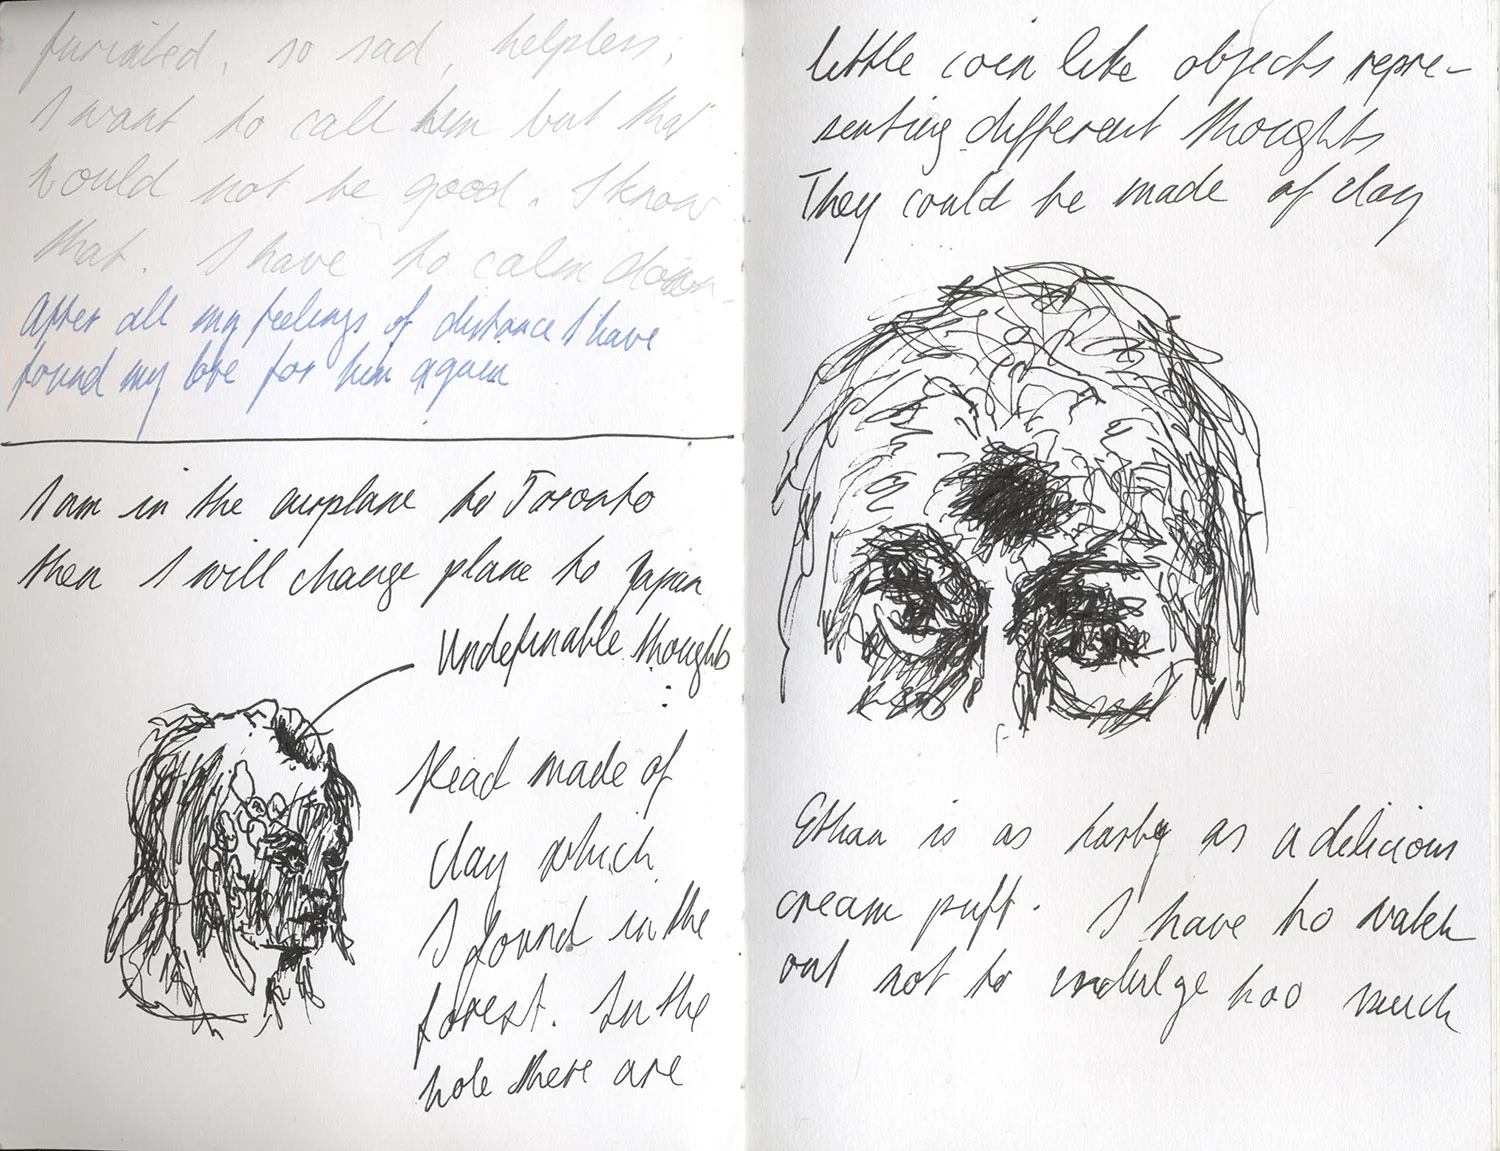 furiated, so sad, helpless,
I want to call him but that
would not be good. I know
that. I have to calm down
After all my feelings of distance I have
found my love for him again
I am in the airplane to Toronto
then I will change plane to Japan
Undefinable thoughts
Head made of
clay which
I found in the
forest. In the
hole there are
little coin like objects repre-
senting different thoughts
They could be made of clay
Ethan is as tasty as a delicious
cream puff. I have to watch
out not to indulge too much